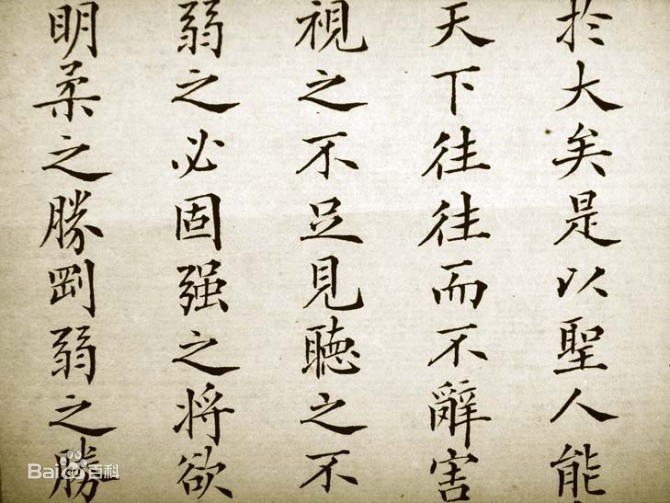 扵大矣是以聖人能
天下徃徃而不辭害
視之不足見聽之不
弱之必固强之将欲
明柔之勝剛弱之勝
Baidu百科